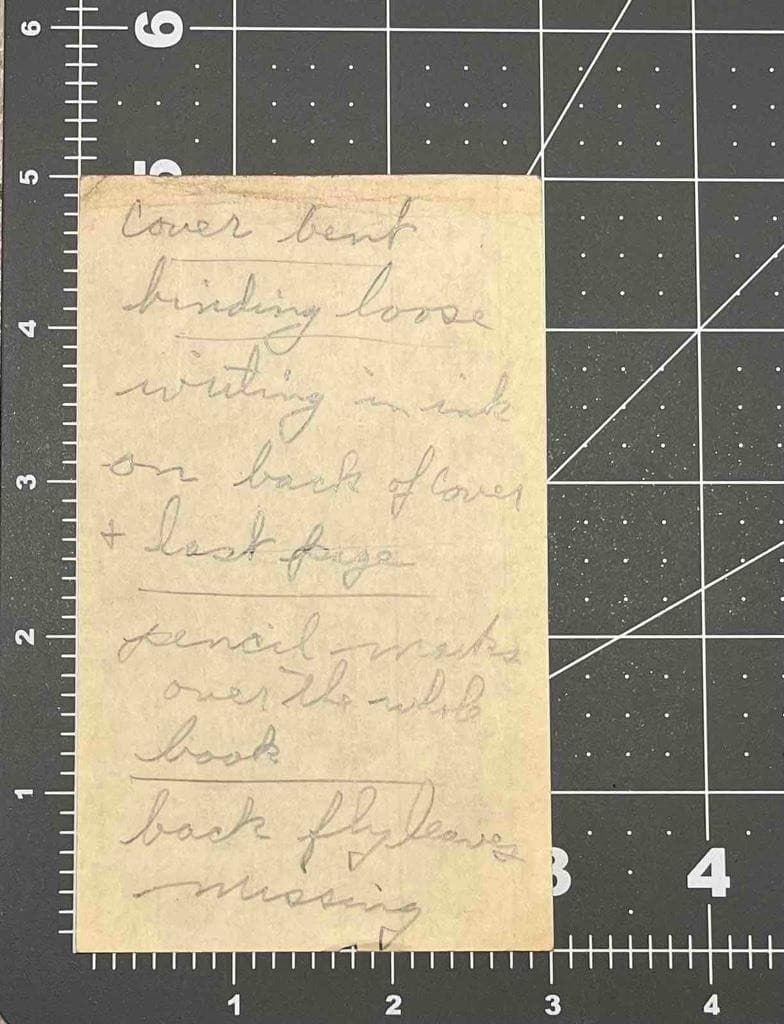 6
6
5
5
cover bent
binding loose
4
writing in ink
on back of cover
3
+ last page
pencil marks
2
over the whole
book
1
back flyleaves
3
4
missing
1
2
3
4